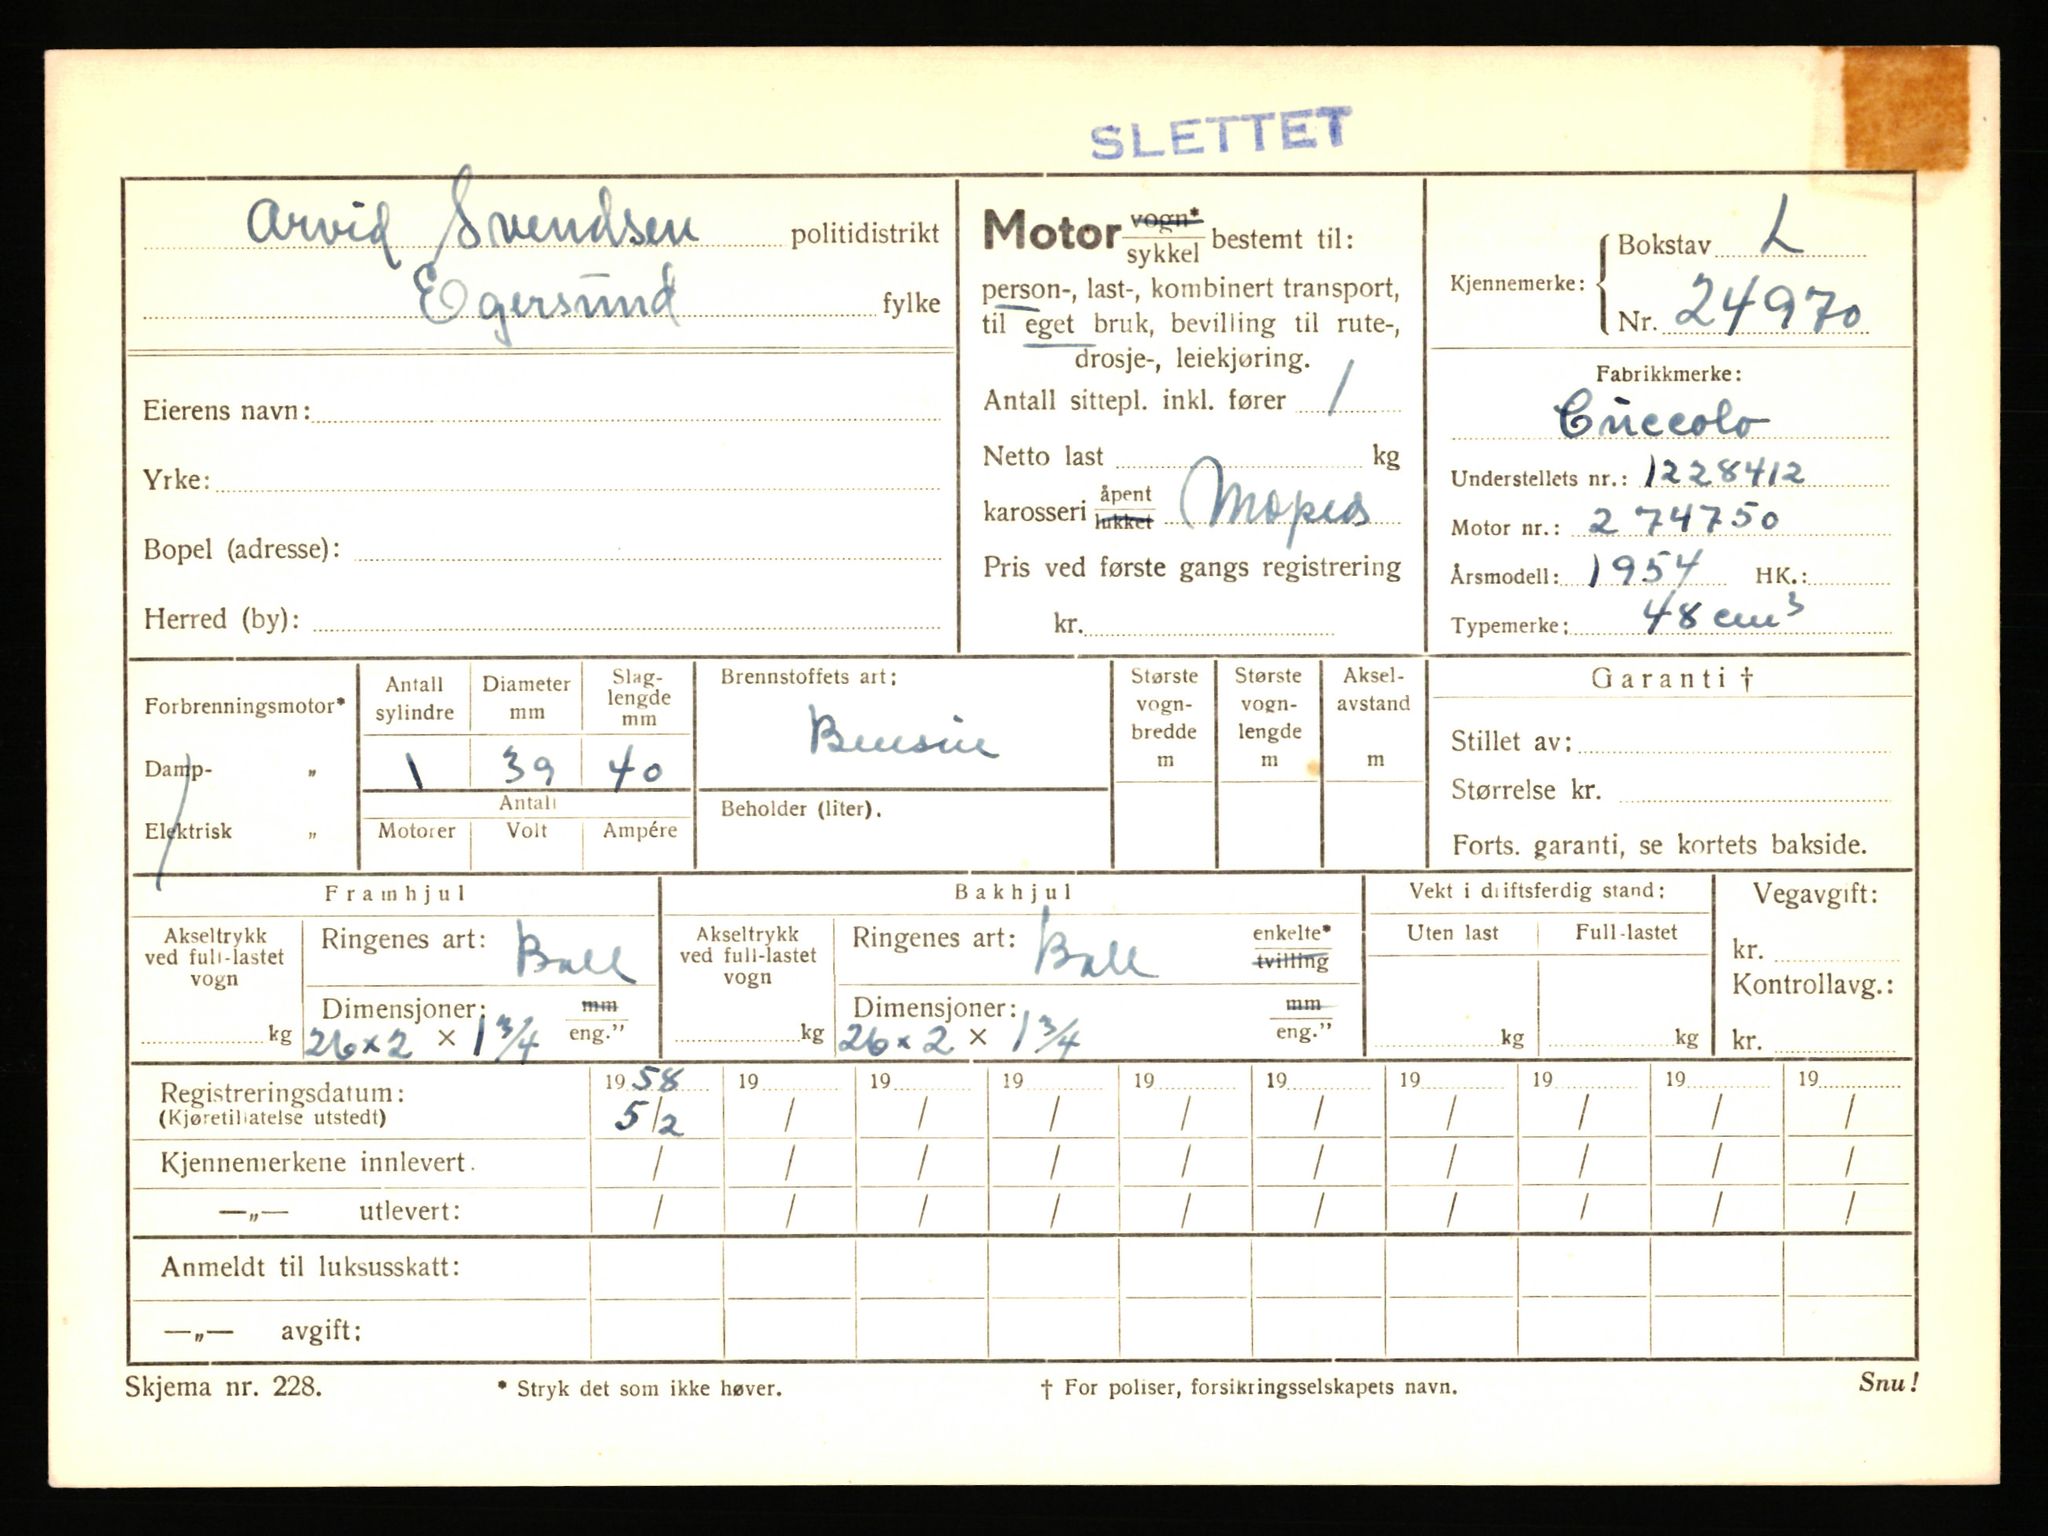 SLETTET
Arvid Svendsen politidistrikt
Egersund fylke
Eierens navn:
Yrke:
Bopel (adresse):
Herred (by):
Motor vogn* / sykkel bestemt til:
person-, last-, kombinert transport,
til eget bruk, bevilling til rute-,
drosje-, leiekjøring.
Antall sittepl. inkl. fører 1
Netto last kg
karosseri åpent / lukket Moped
Pris ved første gangs registrering
kr.
Kjennemerke: Bokstav L
Nr. 24970
Fabrikkmerke:
Cuccolo
Understellets nr.: 1228412
Motor nr.: 274750
Årsmodell: 1954 HK.:
Typemerke: 48 cm³
Forbrenningsmotor*
Damp- „
Elektrisk „
Antall sylindre
Diameter mm
Slag-lengde mm
1 39 40
Antall
Motorer Volt Ampére
Brennstoffets art:
Bensin
Beholder (liter).
Største vogn-bredde m
Største vogn-lengde m
Aksel-avstand m
Garanti †
Stillet av:
Størrelse kr.
Forts. garanti, se kortets bakside.
Framhjul
Akseltrykk ved full-lastet vogn
kg
Ringenes art: Ball
Dimensjoner: mm / eng.”
26 x 2 × 1 3/4
Bakhjul
Akseltrykk ved full-lastet vogn
kg
Ringenes art: Ball enkelte* / tvilling
Dimensjoner: mm / eng.”
26 x 2 × 1 3/4
Vekt i driftsferdig stand:
Uten last Full-lastet
kg kg
Vegavgift:
kr.
Kontrollavg.:
kr.
Registreringsdatum: 19 58 19 19 19 19 19 19 19 19 19
(Kjøretillatelse utstedt) 5/2 / / / / / / / / /
Kjennemerkene innlevert. / / / / / / / / / /
—„— utlevert: / / / / / / / / / /
Anmeldt til luksusskatt:
—„— avgift:
Skjema nr. 228. * Stryk det som ikke høver. † For poliser, forsikringsselskapets navn. Snu!